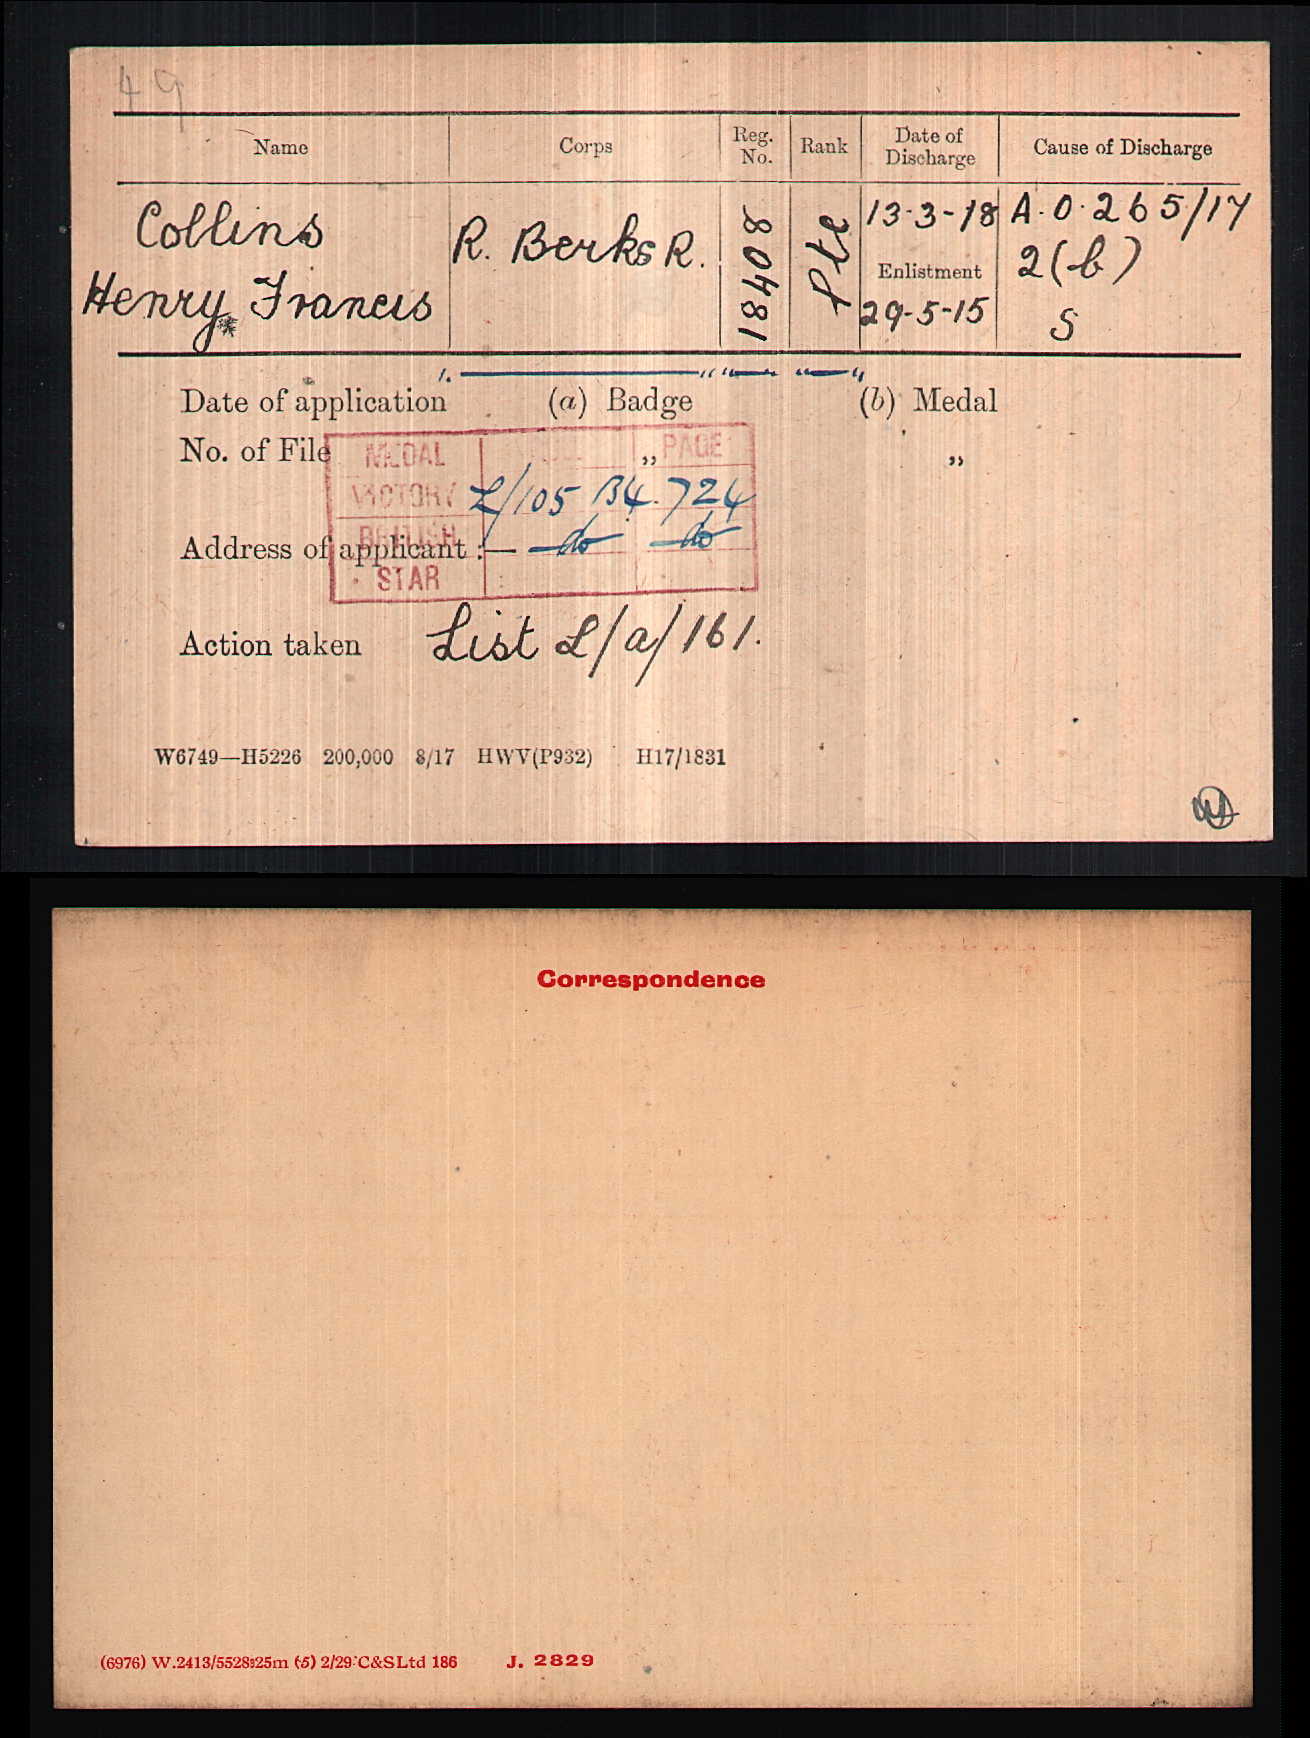 49
Name Corps Reg. No. Rank Date of Discharge Cause of Discharge
Collins R. Berks R. 18408 Pte 13-3-18 A.O.265/17
Enlistment 2(b)
Henry Francis 29-5-15 S
Date of application (a) Badge (b) Medal
No. of File „ „
MEDAL PAGE
VICTORY L/105 B4. 724
BRITISH do do
Address of applicant :—
STAR
Action taken List L/a/161.
W6749—H5226 200,000 8/17 HWV(P932) H17/1831
Correspondence
(6976) W.2413/5528 25m (5) 2/29 C&SLtd 186 J. 2829